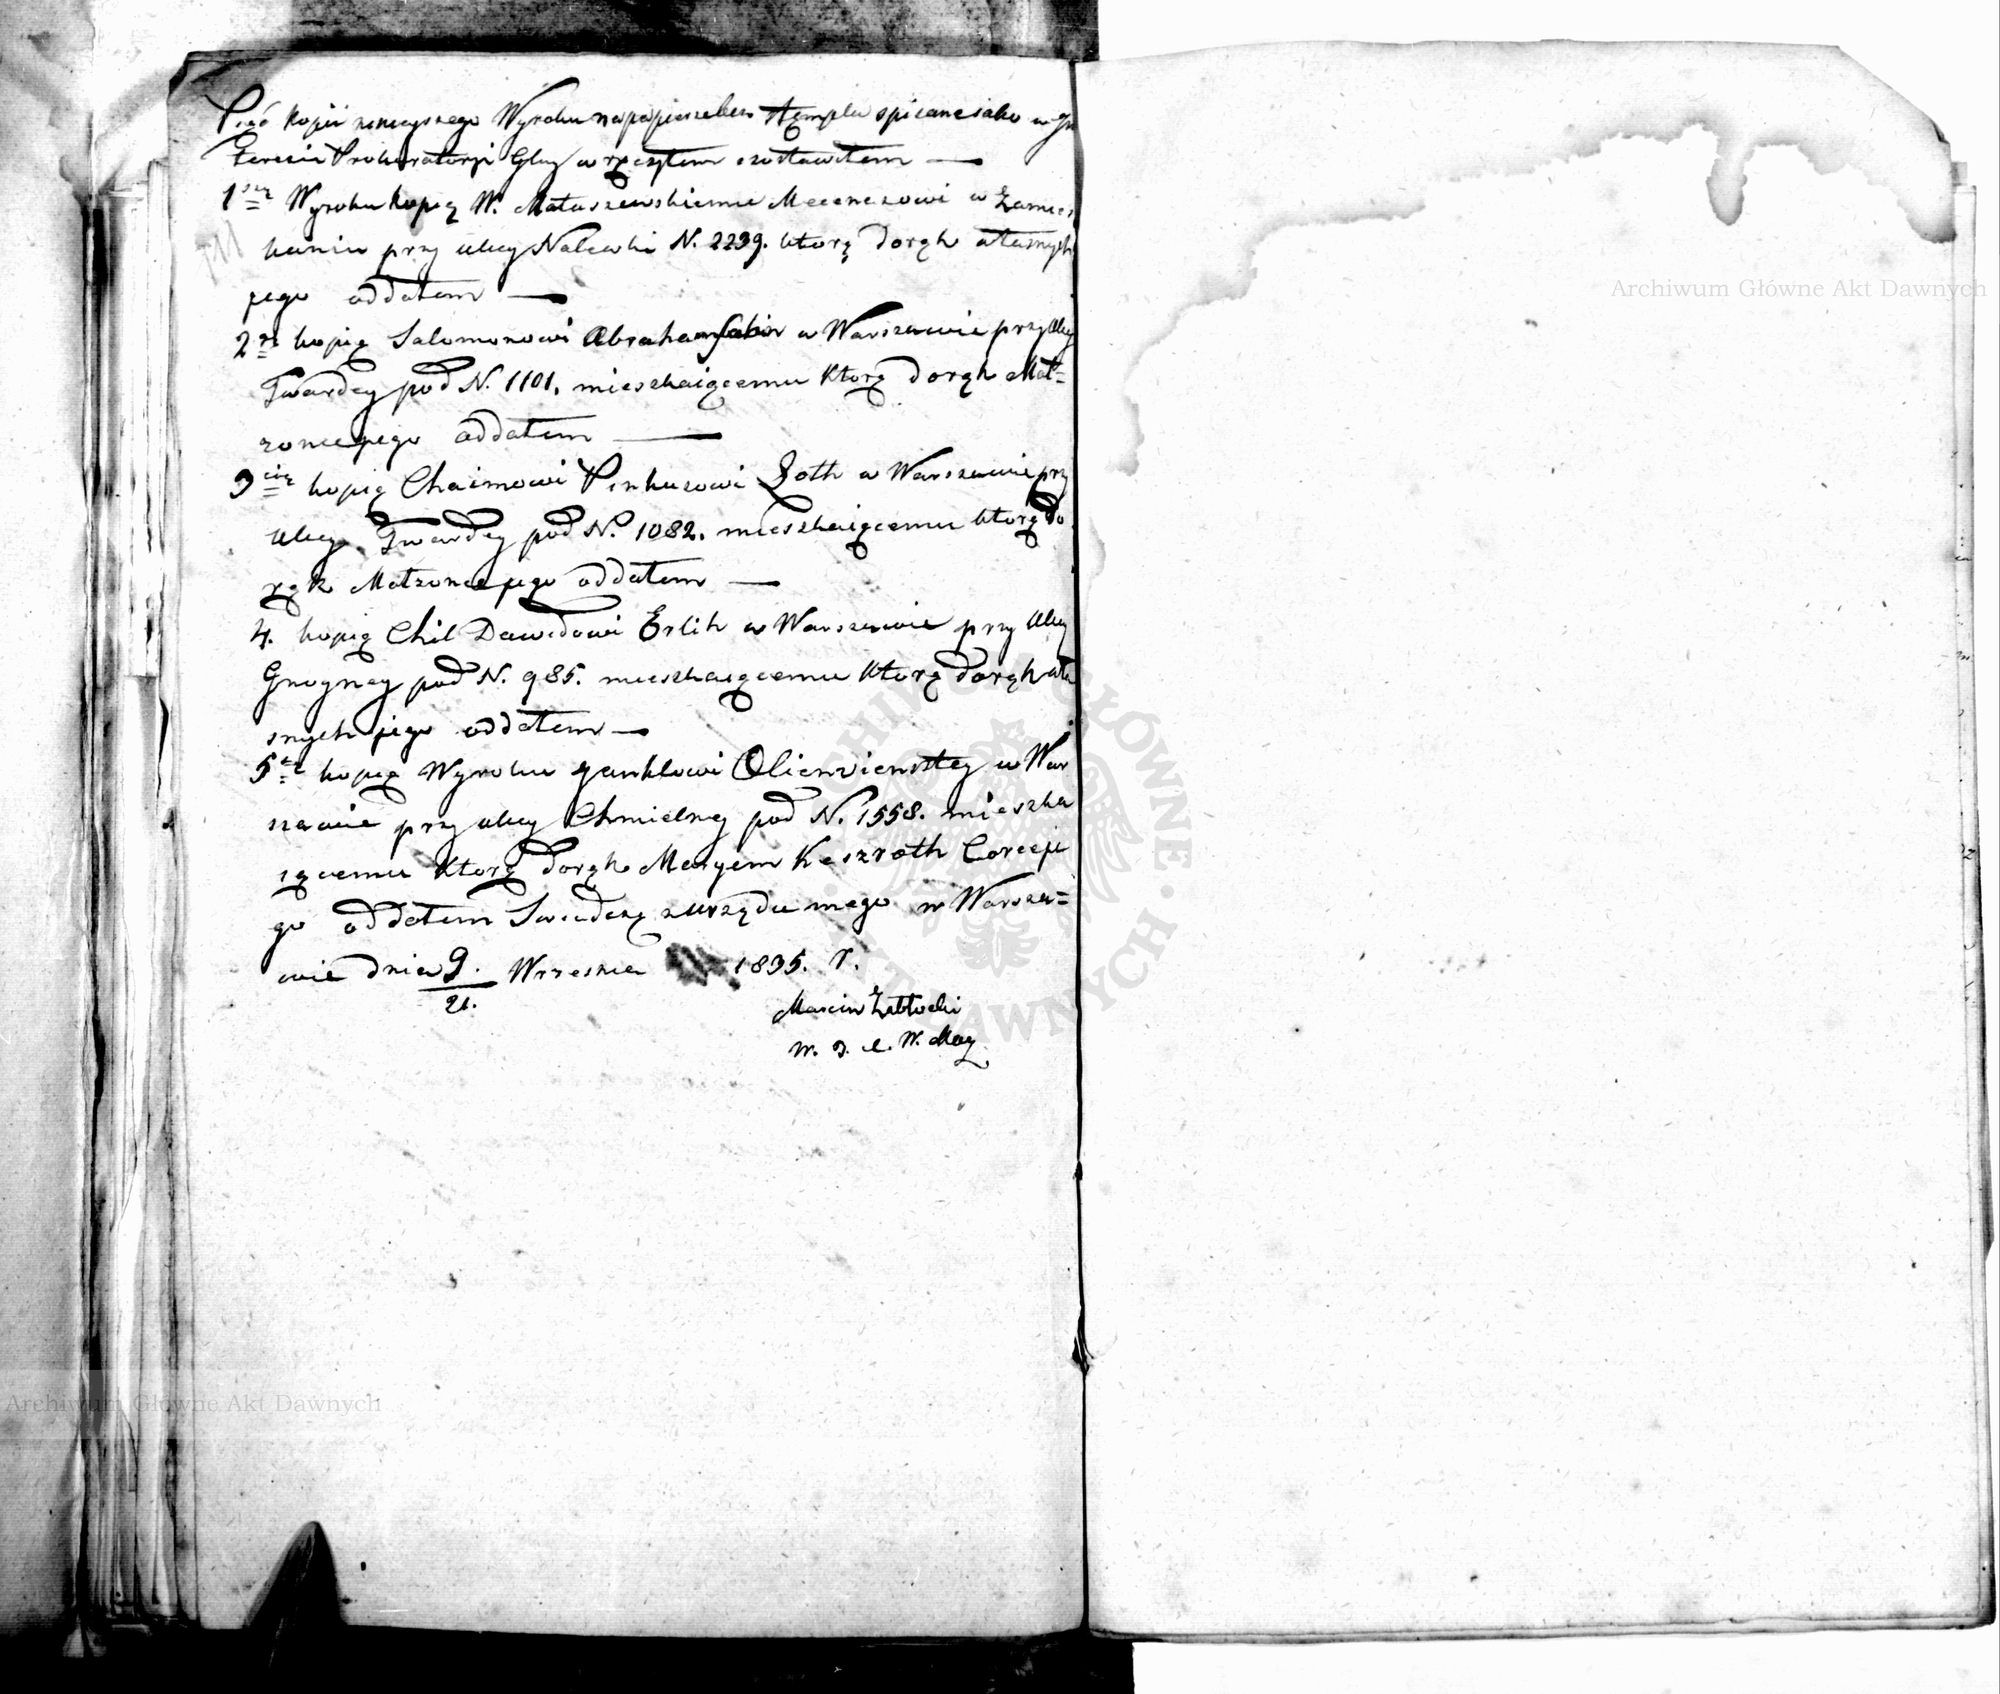 Pięć kopii ninieyszego Wyroku na papierze bez stępla spisane iako w In
teresie Prokuratoryi Glney w rzeczytem zostawiłem —
1szą Wyroku kopię W. Mataszewskiemu Mecenasowi w Zamies
kaniu przy ulicy Nalewki N. 2239. którą do rąk własnych
jego oddałem —
2gą kopię Salomonowi Abraham w Warszawie przy Ulicy
Twardey pod N. 1101. mieszkaiącemu którą do rąk Mał=
zonce jego oddałem —
3cią kopię Chaimowi Pinkusowi Roth w Warszawie przy
ulicy Twardey pod No. 1082. mieszkaiącemu którą do
rąk Małzonce jego oddałem —
4. kopię Chil Dawidowi Erlih w Warszawie przy Ulicy
Gnoyney pod N. 985. mieszkaiącemu którą do rąk wła
snych jego oddałem —
5tą kopię Wyroku Jankłowi w War
szawie przy ulicy Chmielney pod N. 1558. mieszka
iącemu którą do rąk Maryem Keszroth Corce je
go oddałem Swiadczę z urzędu mego w Warsza=
wie dnia 9/21. Wrzesnia 1835. r.
Marcin Zabłocki
W. Maz
Archiwum Główne Akt Dawnych
Archiwum Główne Akt Dawnych
ARCHIWUM GŁÓWNE AKT DAWNYCH